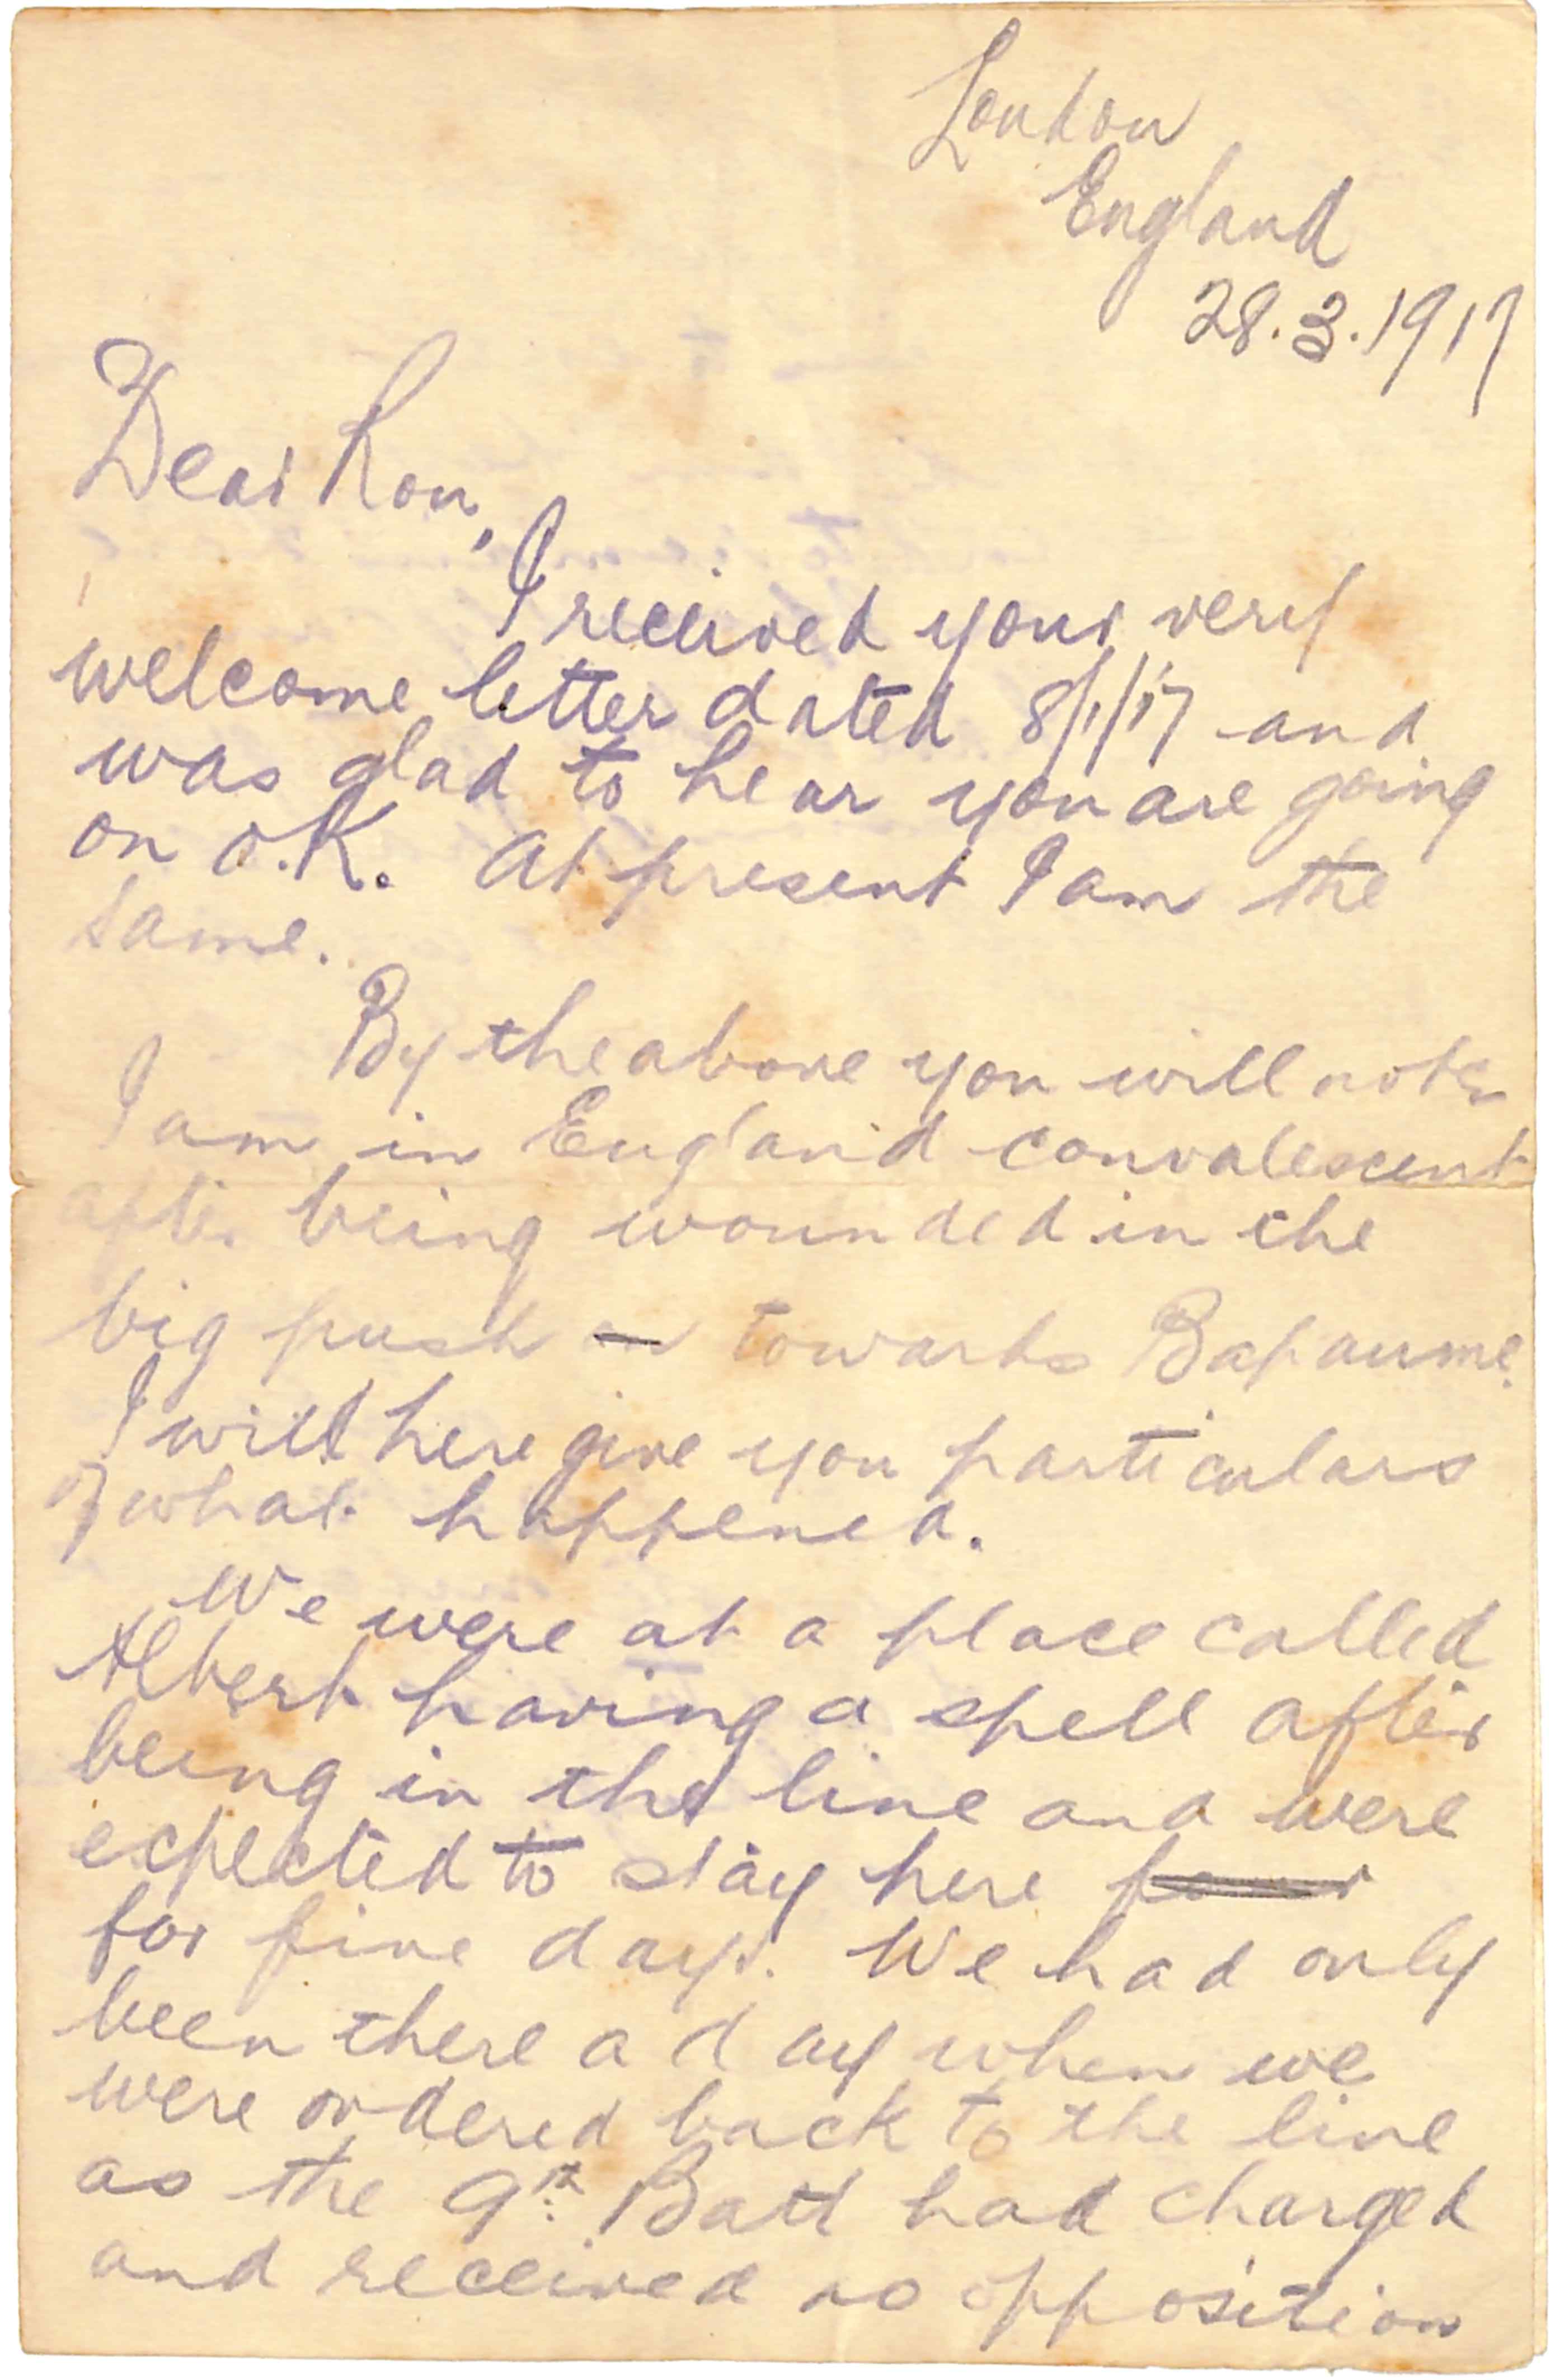 London
England
28.3.1917
Dear Ron,
I received your very
welcome letter dated 8/1/17 and
was glad to hear you are going
on O.K. At present I am the
same.
By the above you will note
I am in England convalescent
after being wounded in the
big push towards Bapaume.
I will here give you particulars
of what happened.
We were at a place called
Albert having a spell after
being in the line and were
expected to stay here
for five days. We had only
been there a day when we
were ordered back to the line
as the 9th Batt had charged
and received no opposition